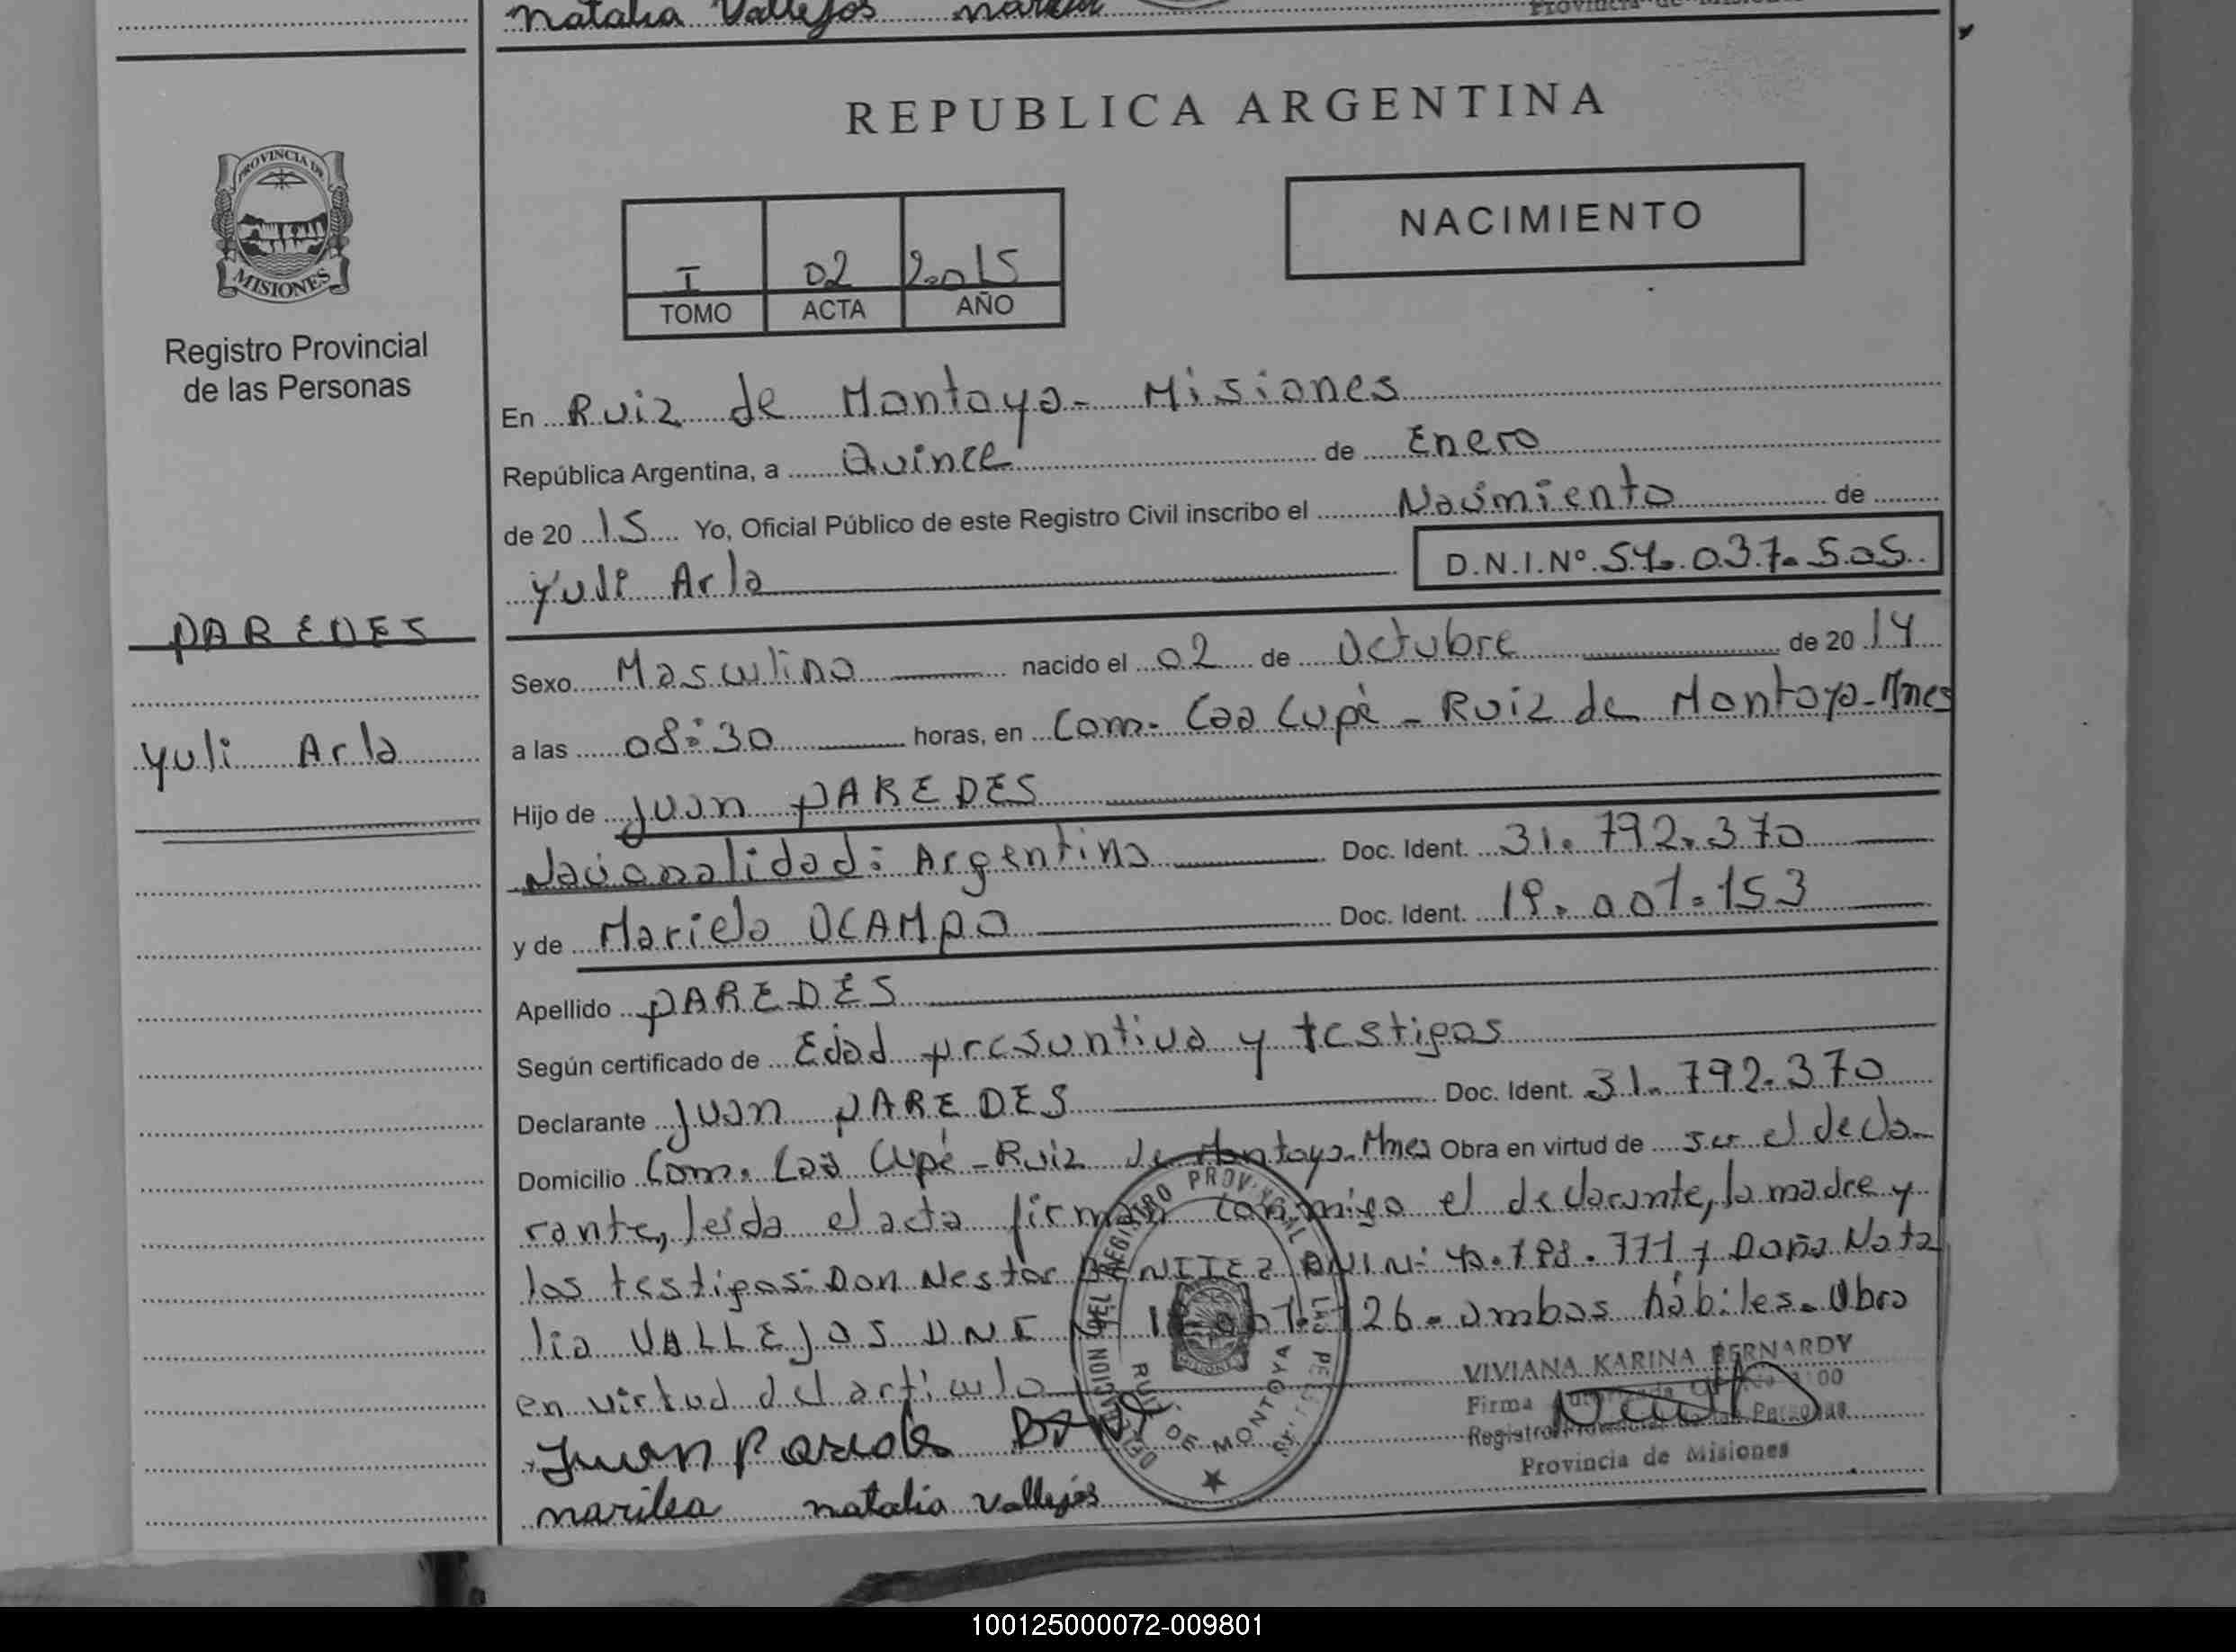 Natalia Vallejos
Provincia de Misiones
REPUBLICA ARGENTINA
PROVINCIA DE
MISIONES
Registro Provincial
de las Personas
NACIMIENTO
I 02 2015
TOMO ACTA AÑO
En Ruiz de Montoya- Misiones
República Argentina, a Quince de Enero
de 20 15 Yo, Oficial Público de este Registro Civil inscribo el Nacimiento de
Yuli Arla D.N.I.Nº 54.037.505
PAREDES
Yuli Arla
Sexo Masculino nacido el 02 de Octubre de 20 14
a las 08:30 horas, en Com. Caa Cupé - Ruiz de Montoya-Mnes
Hijo de Juan PAREDES
Nacionalidad: Argentina Doc. Ident. 31.792.370
y de Mariela OCAMPO Doc. Ident. 19.007.153
Apellido PAREDES
Según certificado de Edad presuntiva y testigos
Declarante Juan PAREDES Doc. Ident. 31.792.370
Domicilio Com. Caa Cupé - Ruiz de Montoya-Mnes Obra en virtud de ser el decla-
rante, leída el acta firman conmigo el declarante, la madre y
los testigos: Don Nestor BENITEZ y Doña Nata
lia VALLEJOS DNI 126- ambos hábiles. Obro
en virtud del artículo
VIVIANA KARINA BERNARDY
Firma
Registro Provincial de las Personas
Provincia de Misiones
Juan Paredes
marilea natalia Vallejos
DELEGACION DEL REGISTRO PROVINCIAL DE LAS PERSONAS
RUIZ DE MONTOYA
100125000072-009801